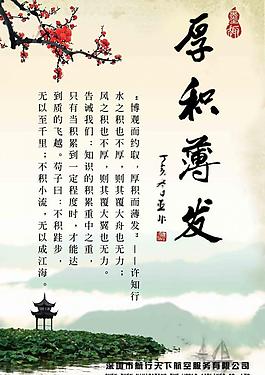 厚积薄发
“博观而约取，厚积而薄发”——许知行
水之积也不厚，则其覆大舟也无力；
风之积也不厚，则其覆大翼也无力。
告诫我们：知识的积累重中之重，
只有当积累到一定程度时，才能达
到质的飞越。荀子曰：不积跬步，
无以至千里；不积小流，无以成江海。
深圳市航行天下航空服务有限公司